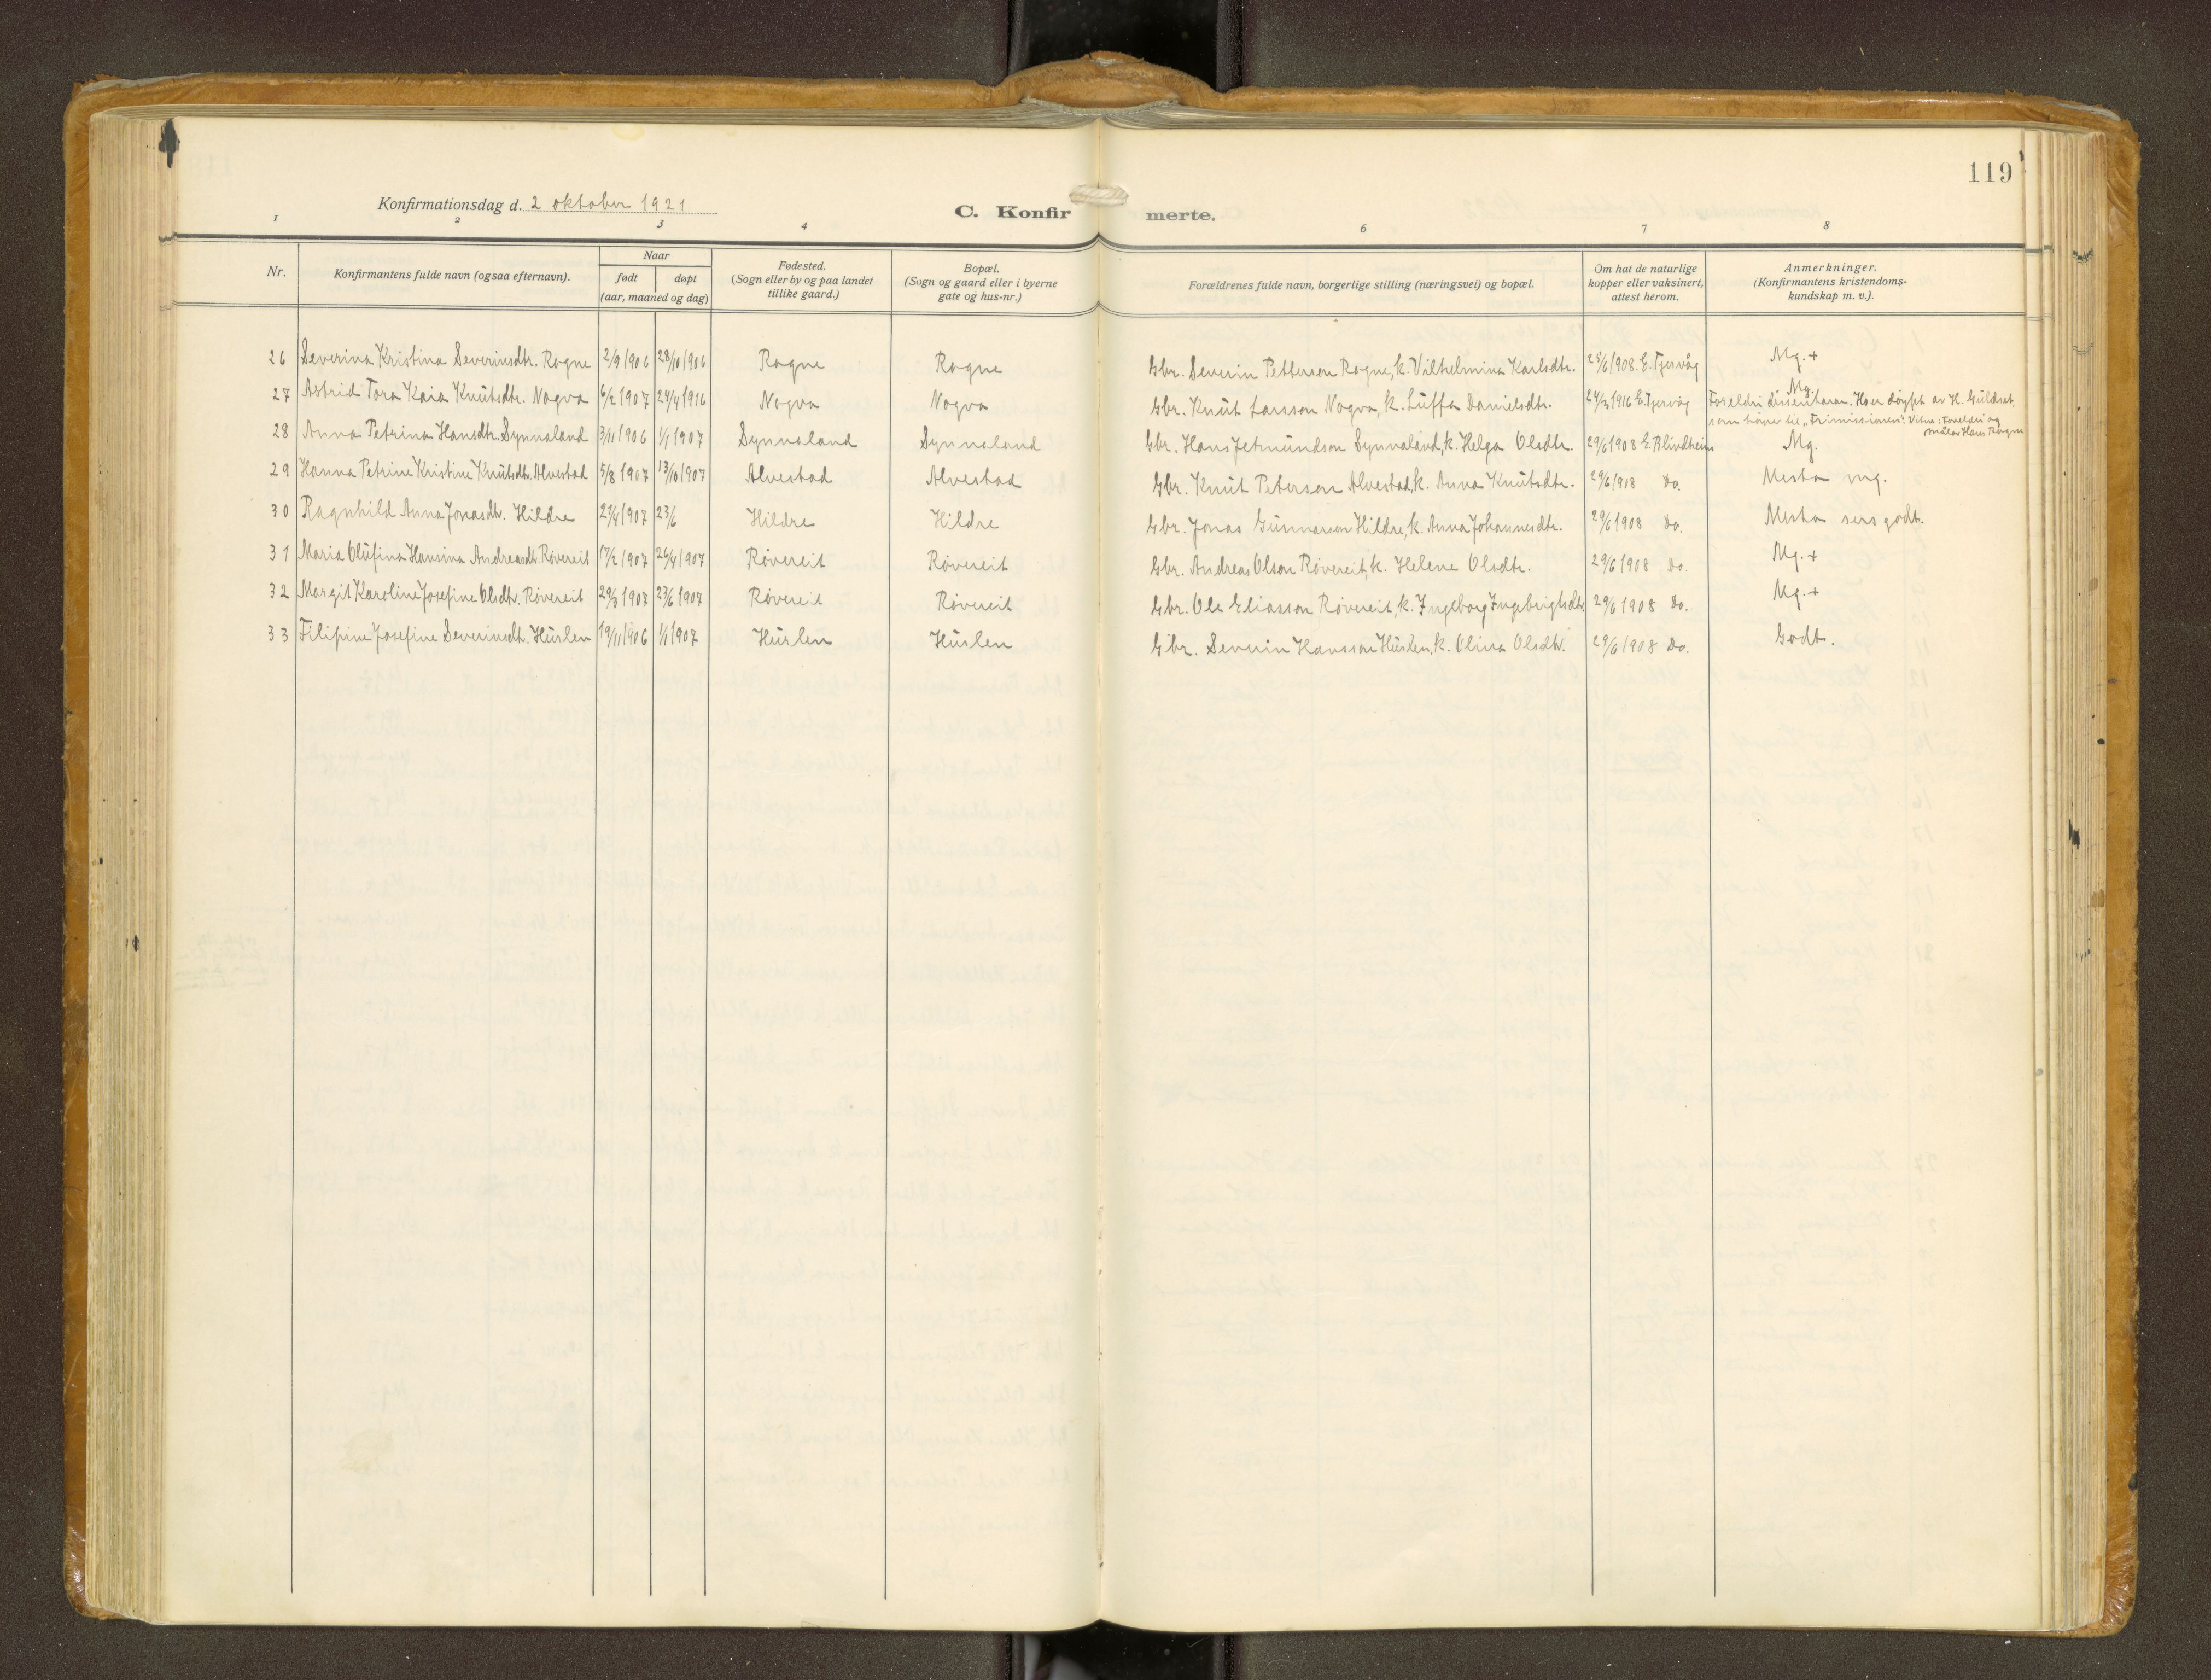 119
Konfirmationsdag d. 2 oktober 1921
C. Konfir merte.
1 2 3 4 6 7 8
Nr.
Konfirmantens fulde navn (ogsaa efternavn).
Naar
født døpt
(aar, maaned og dag)
Fødested.
(Sogn eller by og paa landet
tillike gaard.)
Bopæl.
(Sogn og gaard eller i byerne
gate og hus-nr.)
Forældrenes fulde navn, borgerlige stilling (næringsvei) og bopæl.
Om hat de naturlige
kopper eller vaksinert,
attest herom.
Anmerkninger.
(Konfirmantens kristendoms-
kundskap m. v.).
26 Severina Kristina Severinsdtr. Rogne 2/9 1906 28/10 1906 Rogne Rogne Gbr. Severin Petterson Rogne, k. Vilhelmina Karlsdtr. 25/6 1908 E. Tjervåg Mg.+
27 Astrid Tora Kaia Knutsdtr. Nogva 6/2 1907 24/4 1916 Nogva Nogva Gbr. Knut Larsson Nogva, k. Luffa Danielsdtr. 24/3 1916 E. Tjervåg Mg.
Foreldri dissentarar. Her døypt av H. Guldset,
som høyrer til "Frimissionen". Vitne: Foreldri og
målar Hans Rogne
28 Anna Petrina Hansdtr. Synnaland 3/11 1906 1/1 1907 Synnaland Synnaland Gbr. Hans Jetmundson Synnaland, k. Helga Olsdtr. 29/6 1908 E. Blindheim Mg.
29 Hanna Petrine Kristine Knutsdtr. Alvestad 5/8 1907 13/10 1907 Alvestad Alvestad Gbr. Knut Peterson Alvestad, k. Anna Knutsdtr. 29/6 1908 Do. Mesta mg.
30 Ragnhild Anna Jonasdtr. Hildre 27/4 1907 23/6 Hildre Hildre Gbr. Jonas Gunnarson Hildre, k. Anna Johannesdtr. 29/6 1908 Do. Mesta sers godt.
31 Maria Olufina Hansina Andreasdtr. Røvereit 17/2 1907 26/4 1907 Røvereit Røvereit Gbr. Andreas Olson Røvereit, k. Helene Olsdtr. 29/6 1908 Do. Mg.+
32 Margit Karoline Josefine Olsdtr. Røvereit 29/3 1907 23/6 1907 Røvereit Røvereit Gbr. Ole Eliasson Røvereit, k. Ingeborg Ingebrigtsdtr. 29/6 1908 Do. Mg.+
33 Filipine Josefine Severinsdt. Huslen 19/11 1906 1/1 1907 Huslen Huslen Gbr. Severin Hansson Huslen, k. Olina Olsdtr. 29/6 1908 Do. Godt.